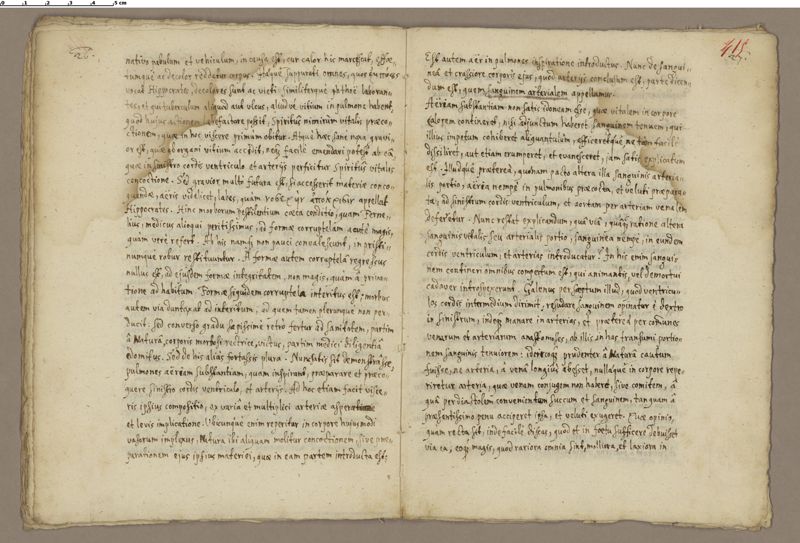 0 1 2 3 4 5 cm
26.
nativo pabulum et vehiculum, in causa est, cur calor hic marcescat,
tumque ac decolor reddatur corpus. Itaque suppurati omnes, quos
vocat Hippocrates, decolores sunt ac vieti: similiterque phthoe laboran-
tes, et qui tuberculum aliquod aut ulcus, aliud ve vitium in pulmone habent,
quod huius actionem labefactare possit, Spiritus nimirum vitalis præco-
ctionem, quæ in hoc viscere primum obitur. Atque hæc sane noxa gravi-
or est, quæ ob organi vitium accidit, nec facile emendari potest ab ea,
quæ in sinistro cordis ventriculo et arteriis perficitur Spiritus vitalis
concoctione. Sed gravior multo futura est, si accesserit materiæ conco-
quendæ, aeris videlicet, labes, quam appellat
Hippocrates. Hinc morborum pestilentium cæca conditio, quam Ferne-
lius, medicus alioqui peritissimus, ad formæ corruptelam acute magis,
quam vere refert. Ab his namque non pauci convalescunt, in pristi-
numque robur restituuntur. A formæ autem corruptela regressus
nullus est, ad eiusdem formæ integritatem, non magis, quam a priva-
tione ad habitum. Formæ siquidem corruptela interitus est; morbus
autem via duntaxat ad interitum, ad quem tamen plerunque non per-
ducit: Sed converso gradu sæpissime retro fertur ad sanitatem, partim
a Natura, corporis morbosi rectrice, victus, partim medici diligentia
edomitus. Sed de his alias fortassis plura. Nunc satis sit demonstrasse,
pulmones aëream substantiam, quam inspirant, præparare et præco-
quere sinistro cordis ventriculo, et arteriis. Ad hoc etiam facit visce-
ris ipsius compositio, ex varia et multiplici arteriæ asperæ
et levis implicatione. Ubicunque enim reperitur in corpore huiusmodi
vasorum implexus, Natura ibi aliquam molitur concoctionem, sive præ-
parationem eius ipsius materiei, quæ in eam partem introducta est:
415
27.
Est autem aër in pulmones inspiratione introductus. Nunc de sangui-
nea et crassiore corporis eius, quod arteriis conclusum est, parte dicen-
dum est, quem sanguinem arterialem appellamus.
Aëream substantiam non satis idoneam esse, quæ vitalem in corpore
calorem contineret, nisi adiunctum haberet sanguinem tenuem, qui
illius impetum cohiberet aliquantulum, efficeretque ne tam facile
difflaret, aut etiam erumperet, et evanesceret, iam satis explicatum
est. Illudque præterea, quonam pacto altera illa sanguinis arteria-
lis portio, aërea nempe in pulmonibus præcocta, et veluti præpara-
ta, ad sinistrum cordis ventriculum, et aortam per arteriam venalem
deferetur. Nunc restat explicendum, qua via, quaque ratione altera
sanguinis vitalis seu arterialis portio, sanguinea nempe, in eundem
cordis ventriculum, et arterias introducatur. In his enim sangui-
nem contineri omnibus compertum est, qui animantis, vel demortui
cadaver introspexerunt. Galenus per sæptum illud, quod ventricu-
los cordis intermedium dirimit, resudare sanguinem opinatur e dextro
in sinistrum, indeque manare in arterias, et præterea per communes
venarum et arteriarum anastomoses, ab illis in has transfumi portio-
nem sanguinis tenuiorem: idcircoque prudenter a Natura cautum
fuisse, ne arteria, a vena longius abesset, nullaque in corpore repe-
riretur arteria, quæ venam coniugem non haberet, sive comitem, a
qua per diastolem convenientem succum et sanguinem, tanquam a
præsentissimo penu acciperet ipsa, et veluti exugeret. Quæ opinio,
quam recta sit, inde facile discas, quod et in fœtu sufficere debuisset
via ea, eoque magis, quod rariora omnia sint, molliora, et laxiora in